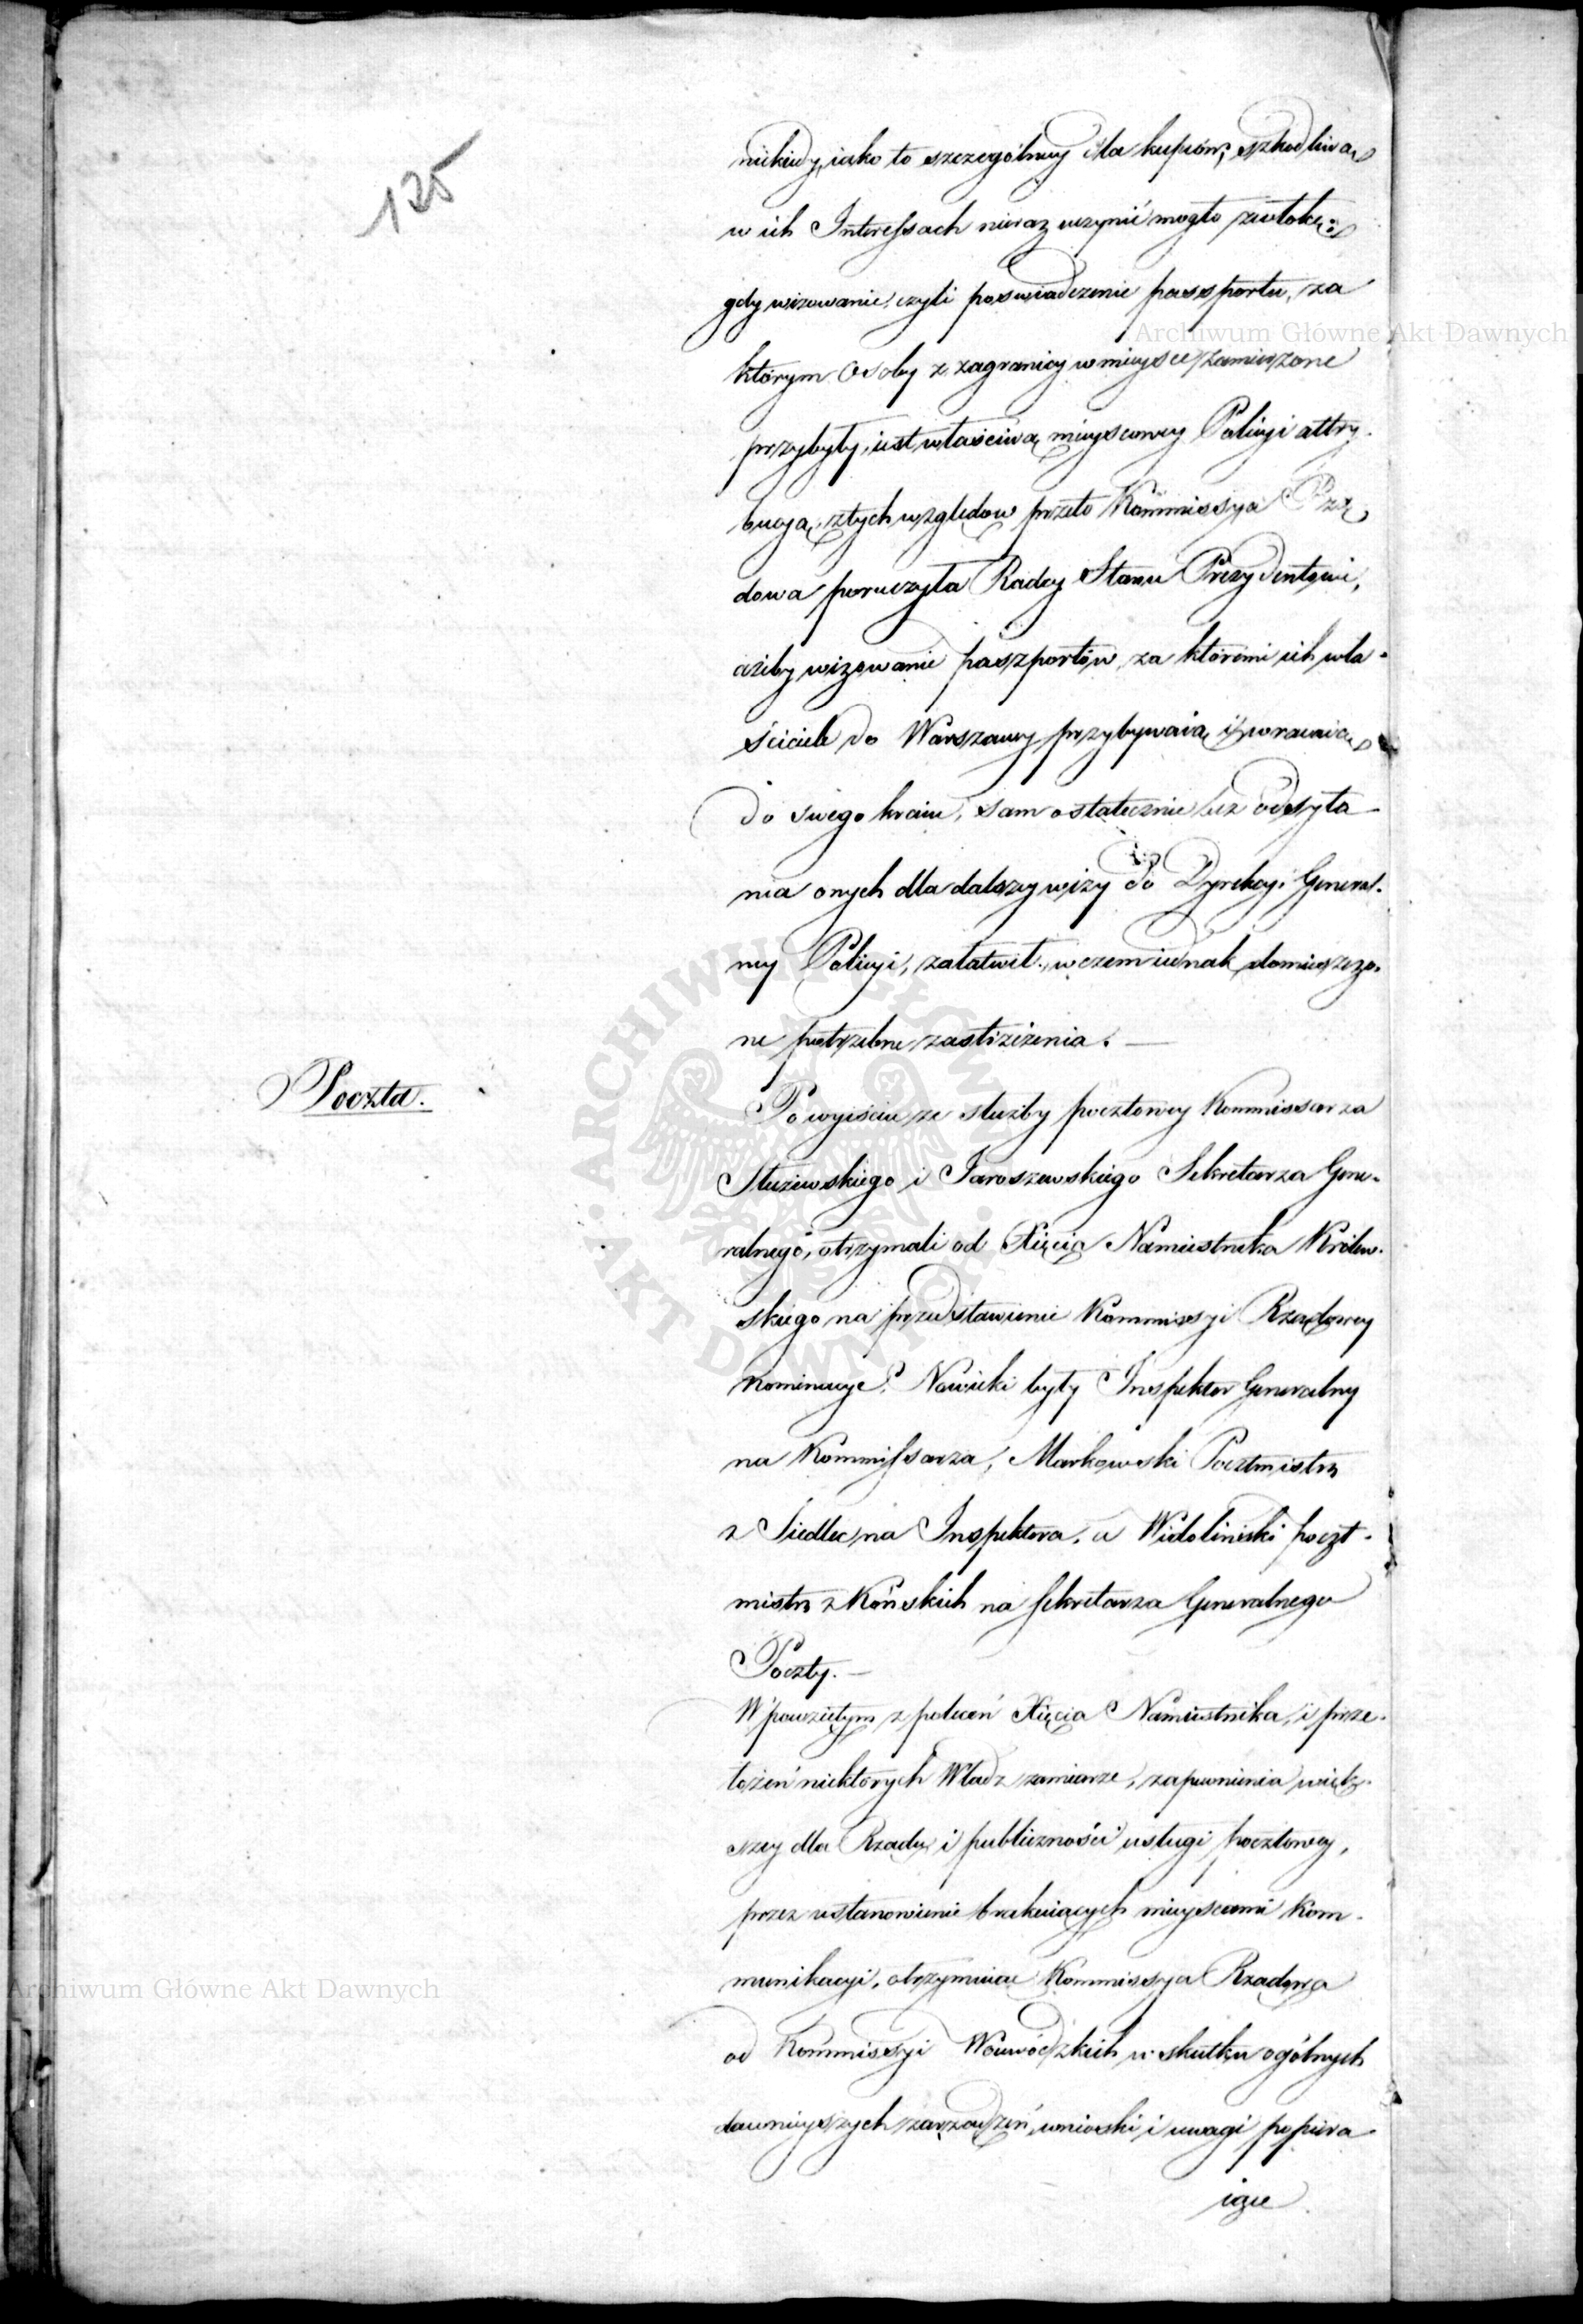 125
niekiedy, iako to szczególniey dla kupców, szkodliwą
w ich Interessach nieraz uczynić mogło zwłokę:
gdy wizowanie, czyli poswiadczenie passportu, za
którym Osoby z zagranicy w mieysce zamierzone
przybyły, iest właściwą mieyscowey Policyi attry-
bucyą, z tych względow przeto Kommissya Rzą-
dowa poruczyła Radcy Stanu Prezydentowi,
ażeby wizowanie paszportów, za któremi ich wła-
ściciele do Warszawy przybywaią i powracaią
do swego kraiu, sam ostatecznie bez odsyła-
nia onych dla dalszey wizy do Dyrekcyi General-
ney Policyi, załatwił, w czem iednak domieszczo-
ne potrzebne zastrzeżenia. —
Poczta.
Po wyiściu ze służby pocztowey Kommissarza
Służewskiego i Jaroszewskiego Sekretarza Gene-
ralnego, otrzymali od Xięcia Namiestnika Królew-
skiego na przedstawienie Kommissyi Rządowey
nominacye: Nowicki były Inspektor Generalny
na Kommissarza, Markowski Pocztmistrz
z Siedlec na Inspektora, a Widoliński poczt-
mistrz z Końskich na Sekretarza Generalnego
Poczty. —
W powziętym z poleceń Xięcia Namiestnika, i prze-
łożeń niektórych Władz zamiarze, zapewnienia więk-
szey dla Rządu i publiczności usługi pocztowey,
przez ustanowienie brakuiących mieyscami Kom-
munikacyi, otrzymuiąc Kommissya Rządowa
od Kommissyi Woiewódzkich w skutku ogólnych
dawnieyszych zarządzeń, wnioski i uwagi popiera-
iące
Archiwum Główne Akt Dawnych
Archiwum Główne Akt Dawnych
ARCHIWUM GŁÓWNE
AKT DAWNYCH